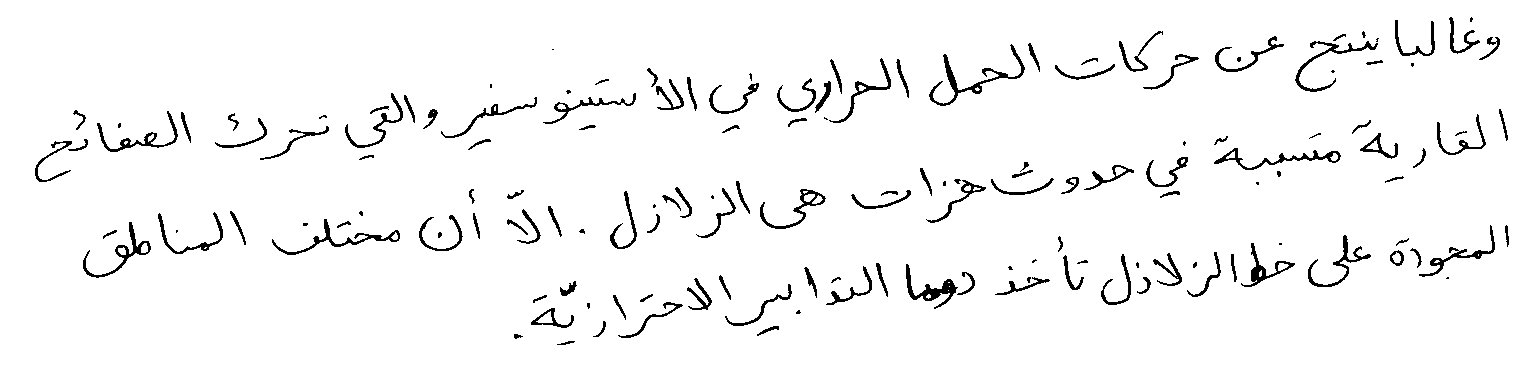 وغالبا ينتج عن حركات الحمل الحراري في الأستينوسفير والتي تحرك الصفائح
القارية متسببة في حدوث هزات هي الزلازل . الاّ أن مختلف المناطق
المجودة على خط الزلازل تأخذ دوما التدابير الاحترازيّة .